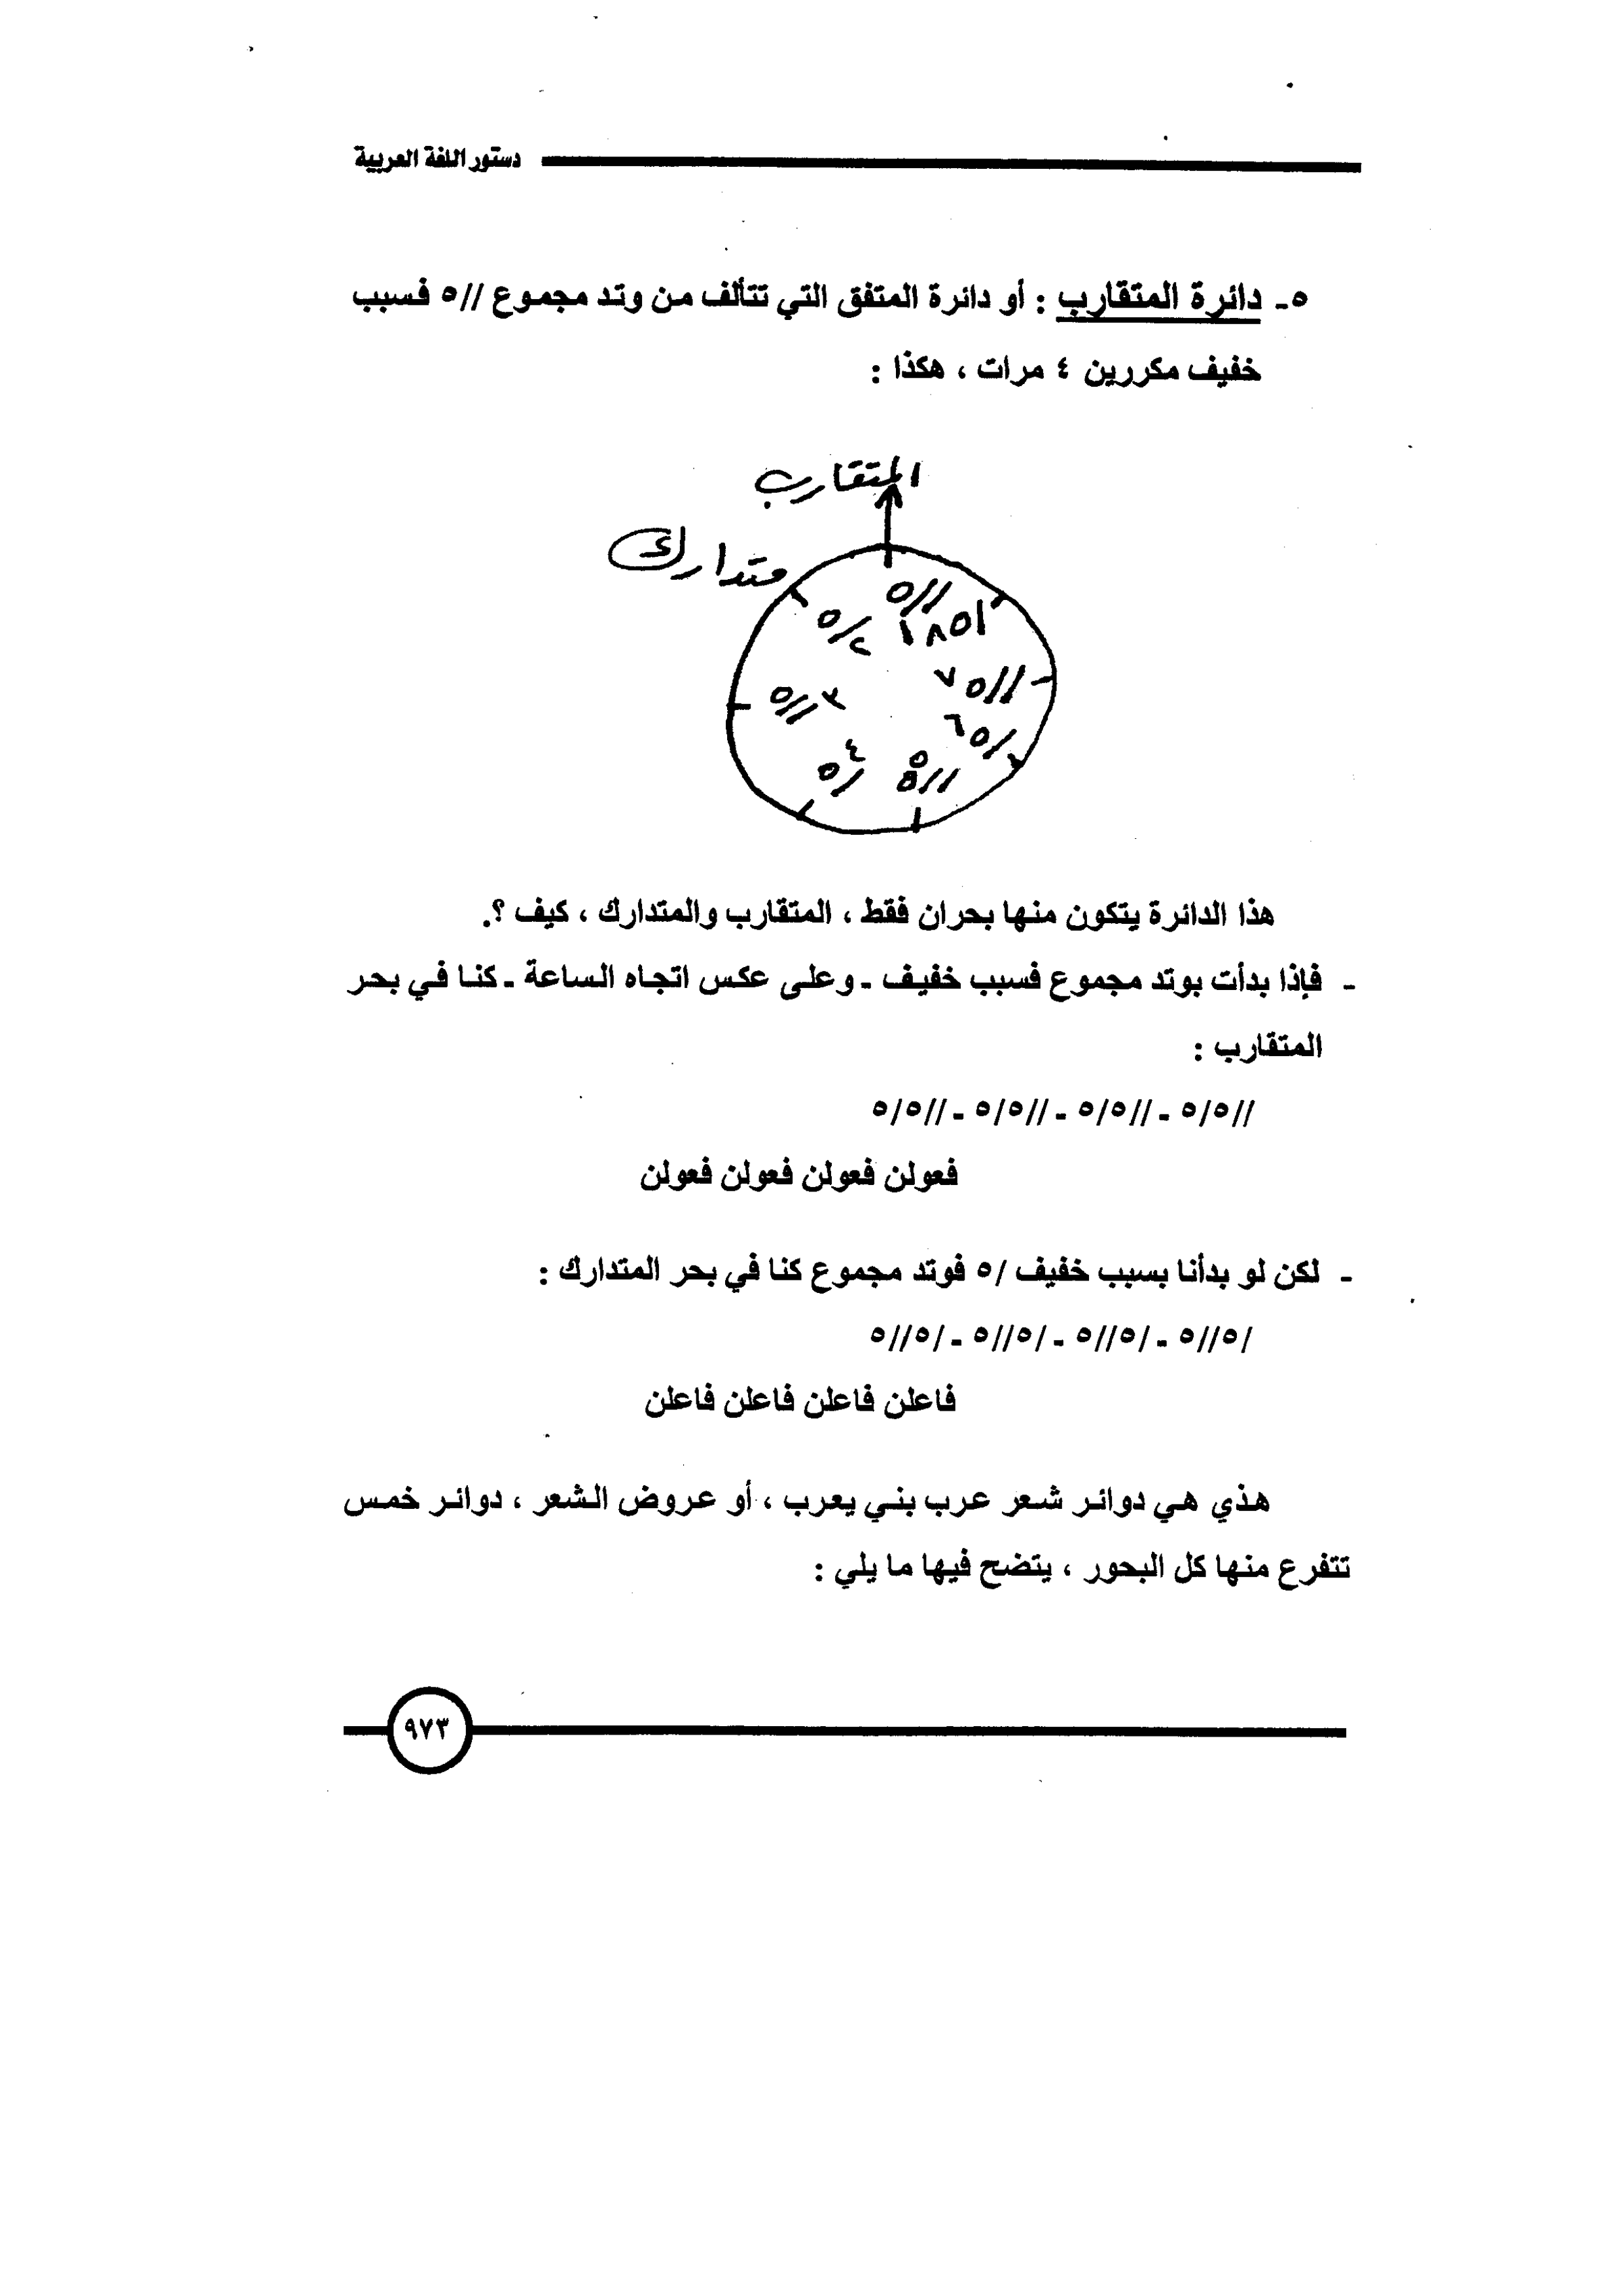 دستور اللغة العربية
٥ـ دائرة المتقارب : أو دائرة المتفق التي تتألف من وتد مجموع //٥ فسبب
خفيف مكررين ٤ مرات ، هكذا :
المتقارب
متدارك
//٥ ١
/٥ ٢
//٥ ٣
/٥ ٤
//٥ ٥
/٥ ٦
//٥ ٧
/٥ ٨
هذا الدائرة يتكون منها بحران فقط ، المتقارب والمتدارك ، كيف ؟.
ـ فإذا بدأت بوتد مجموع فسبب خفيف ـ وعلى عكس اتجاه الساعة ـ كنا في بحر
المتقارب :
//٥/٥ ـ //٥/٥ ـ //٥/٥ ـ //٥/٥
فعولن فعولن فعولن فعولن
ـ لكن لو بدأنا بسبب خفيف /٥ فوتد مجموع كنا في بحر المتدارك :
/٥//٥ ـ /٥//٥ ـ /٥//٥ ـ /٥//٥
فاعلن فاعلن فاعلن فاعلن
هذي هي دوائر شعر عرب بني يعرب ، أو عروض الشعر ، دوائر خمس
تتفرع منها كل البحور ، يتضح فيها ما يلي :
٩٧٣